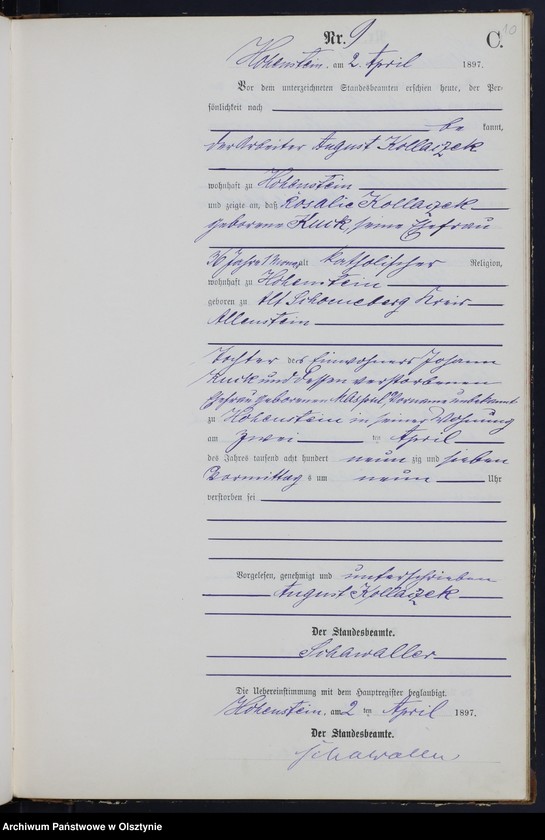 10
Nr. 9
C.
Hohenstein. am 2. April 1897.
Vor dem unterzeichneten Standesbeamten erschien heute, der Per-
sönlichkeit nach
be kannt,
der Arbeiter August Kollaizek
wohnhaft zu Hohenstein
und zeigte an, daß Rosalie Kollaizek
geborene Kuck, seine Ehefrau
36 Jahre 1 Monat alt katholischer Religion,
wohnhaft zu Hohenstein
geboren zu Alt Schoeneberg Kreis
Allenstein
Tochter des Einwohners Johann
Kuck und dessen verstorbenen
Ehefrau geborenen Vorname unbekannt
zu Hohenstein in seiner Wohnung
am zwei ten April
des Jahres tausend acht hundert neun zig und sieben
Vormittag s um neun Uhr
verstorben sei
Vorgelesen, genehmigt und unterschrieben
August Kollaizek
Der Standesbeamte.
Schawaller
Die Uebereinstimmung mit dem Hauptregister beglaubigt.
Hohenstein. am 2 ten April 1897.
Der Standesbeamte.
Schawaller
Archiwum Państwowe w Olsztynie